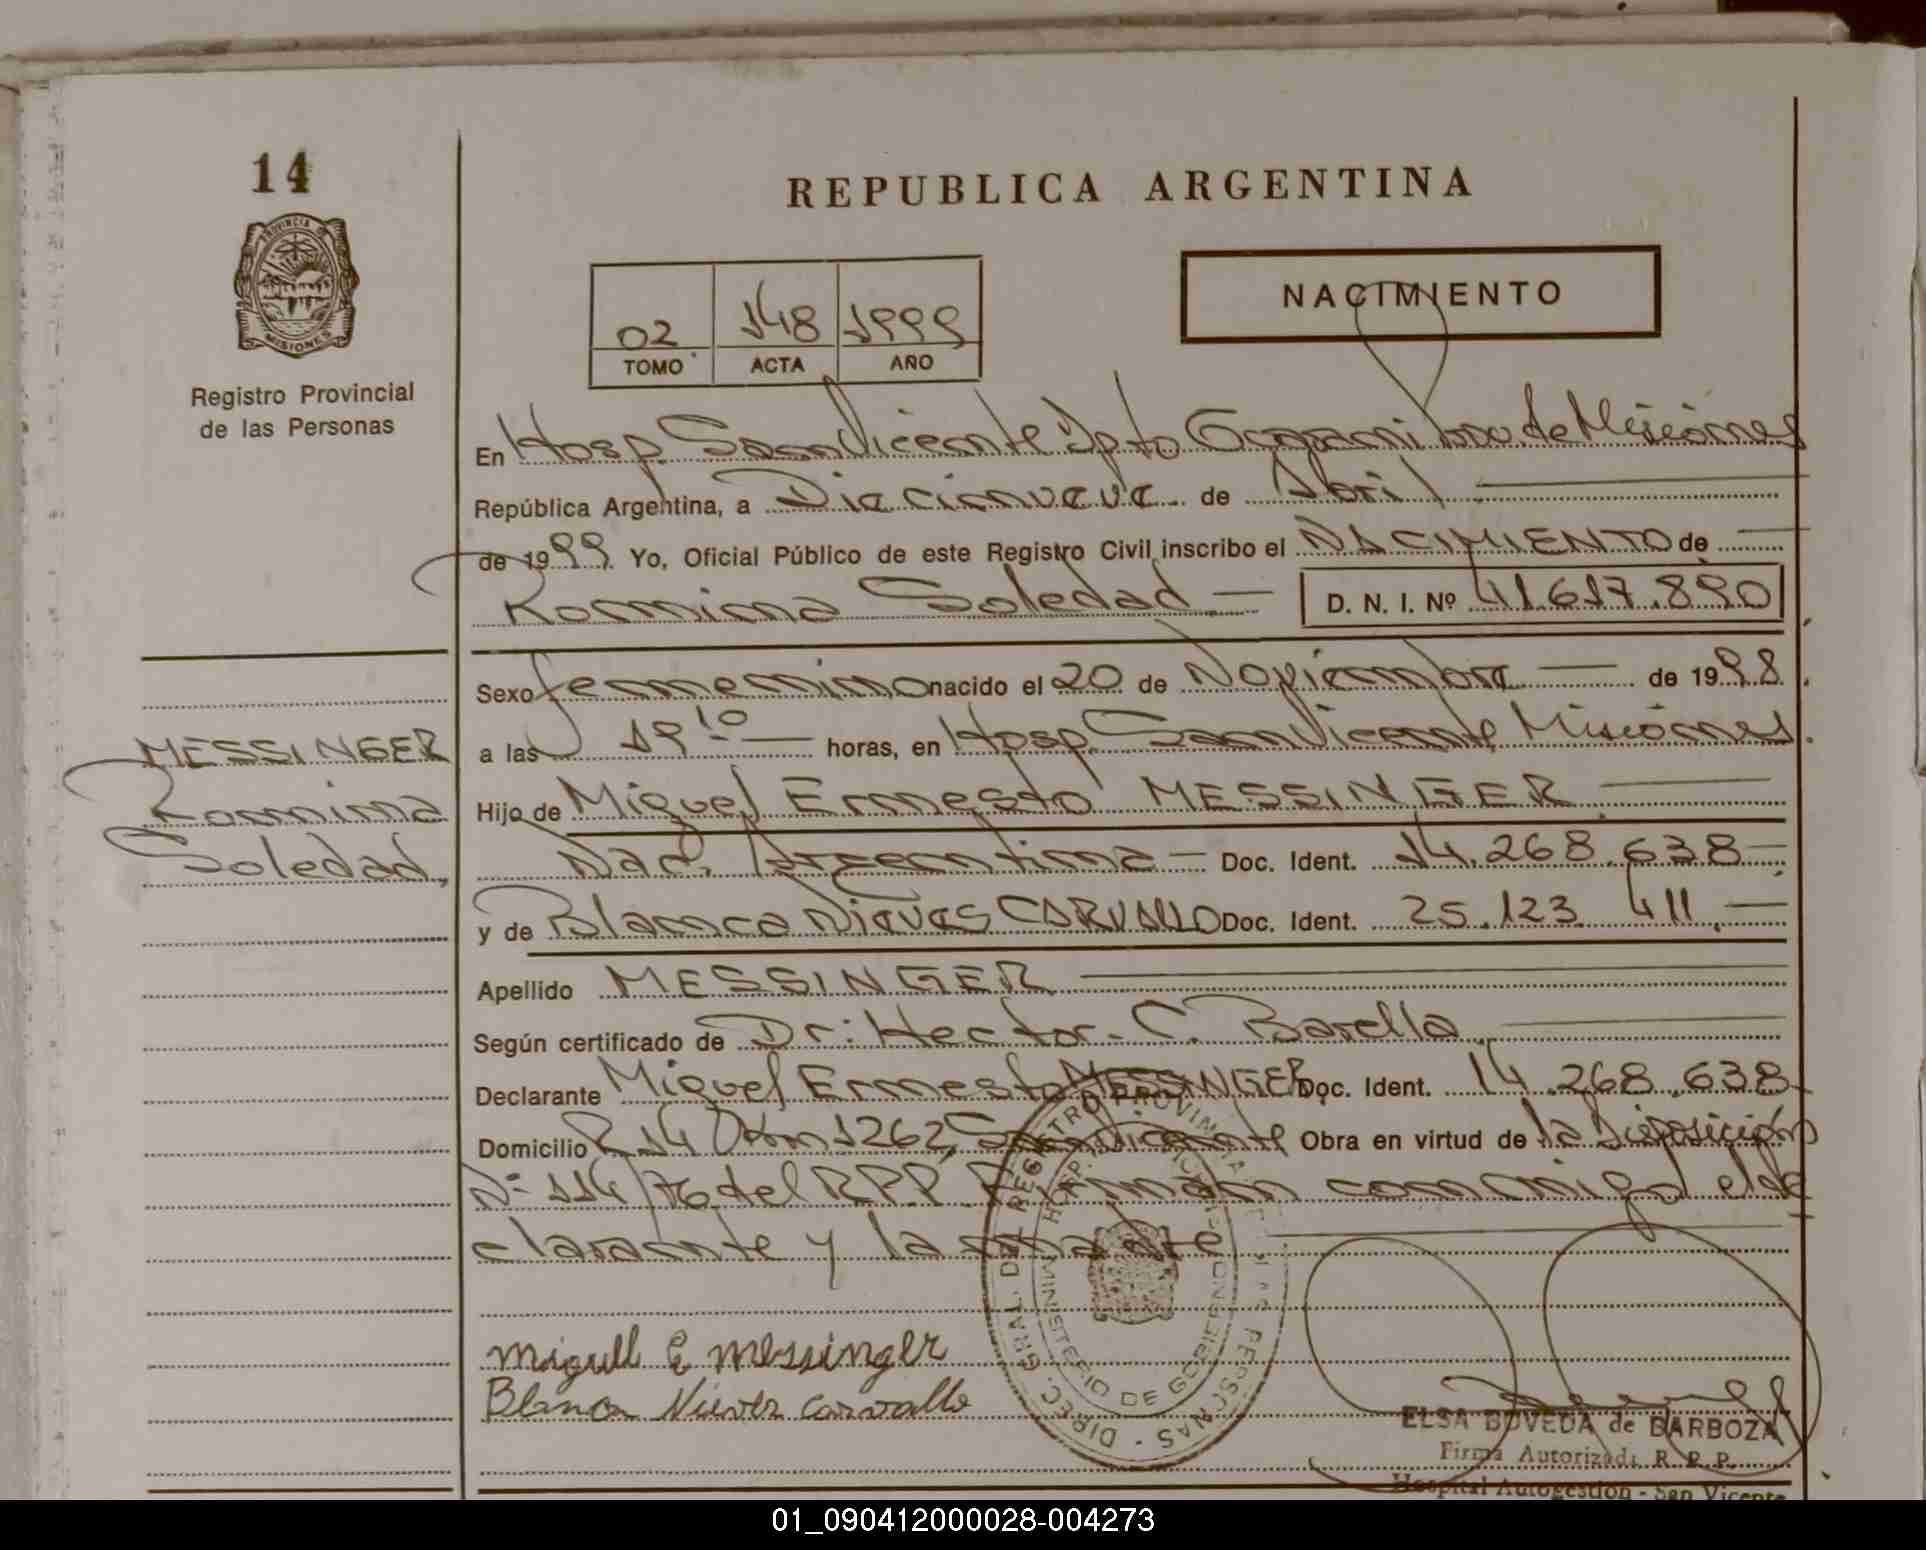 14
PROVINCIA DE
MISIONES
Registro Provincial
de las Personas
REPUBLICA ARGENTINA
02 148 1999
TOMO ACTA AÑO
NACIMIENTO
En Hosp. San Vicente Dpto Guarani Prov de Misiones
República Argentina, a Diecinueve de Abril
de 1999 Yo, Oficial Público de este Registro Civil inscribo el NACIMIENTO de
Romina Soledad D. N. I. Nº 41.617.890
Sexo femenino nacido el 20 de Noviembre de 1998.
a las 19 10 horas, en Hosp. San Vicente, Misiones.
Hijo de Miguel Ernesto MESSINGER
Nac. Argentina Doc. Ident. 14.268.638
y de Blanca Nieves CARVALLO Doc. Ident. 25.123.411
Apellido MESSINGER
Según certificado de Dr: Hector C. Barella
Declarante Miguel Ernesto MESSINGER Doc. Ident. 14.268.638
Domicilio R 14 Km 1262, San Vicente Obra en virtud de la Disposición
Nº 114/76 del RPP. Firman conmigo el de
clarante y la madre
MESSINGER
Romina
Soledad,
Miguel E Messinger
Blanca Nieves Carvallo
DIREC. GRAL. DEL REGISTRO PROVINCIAL DE LAS PERSONAS
MINISTERIO DE GOBIERNO
ELSA BOVEDA de BARBOZA
Firma Autorizada R. P. P.
Hospital Autogestión - San Vicente
01_090412000028-004273